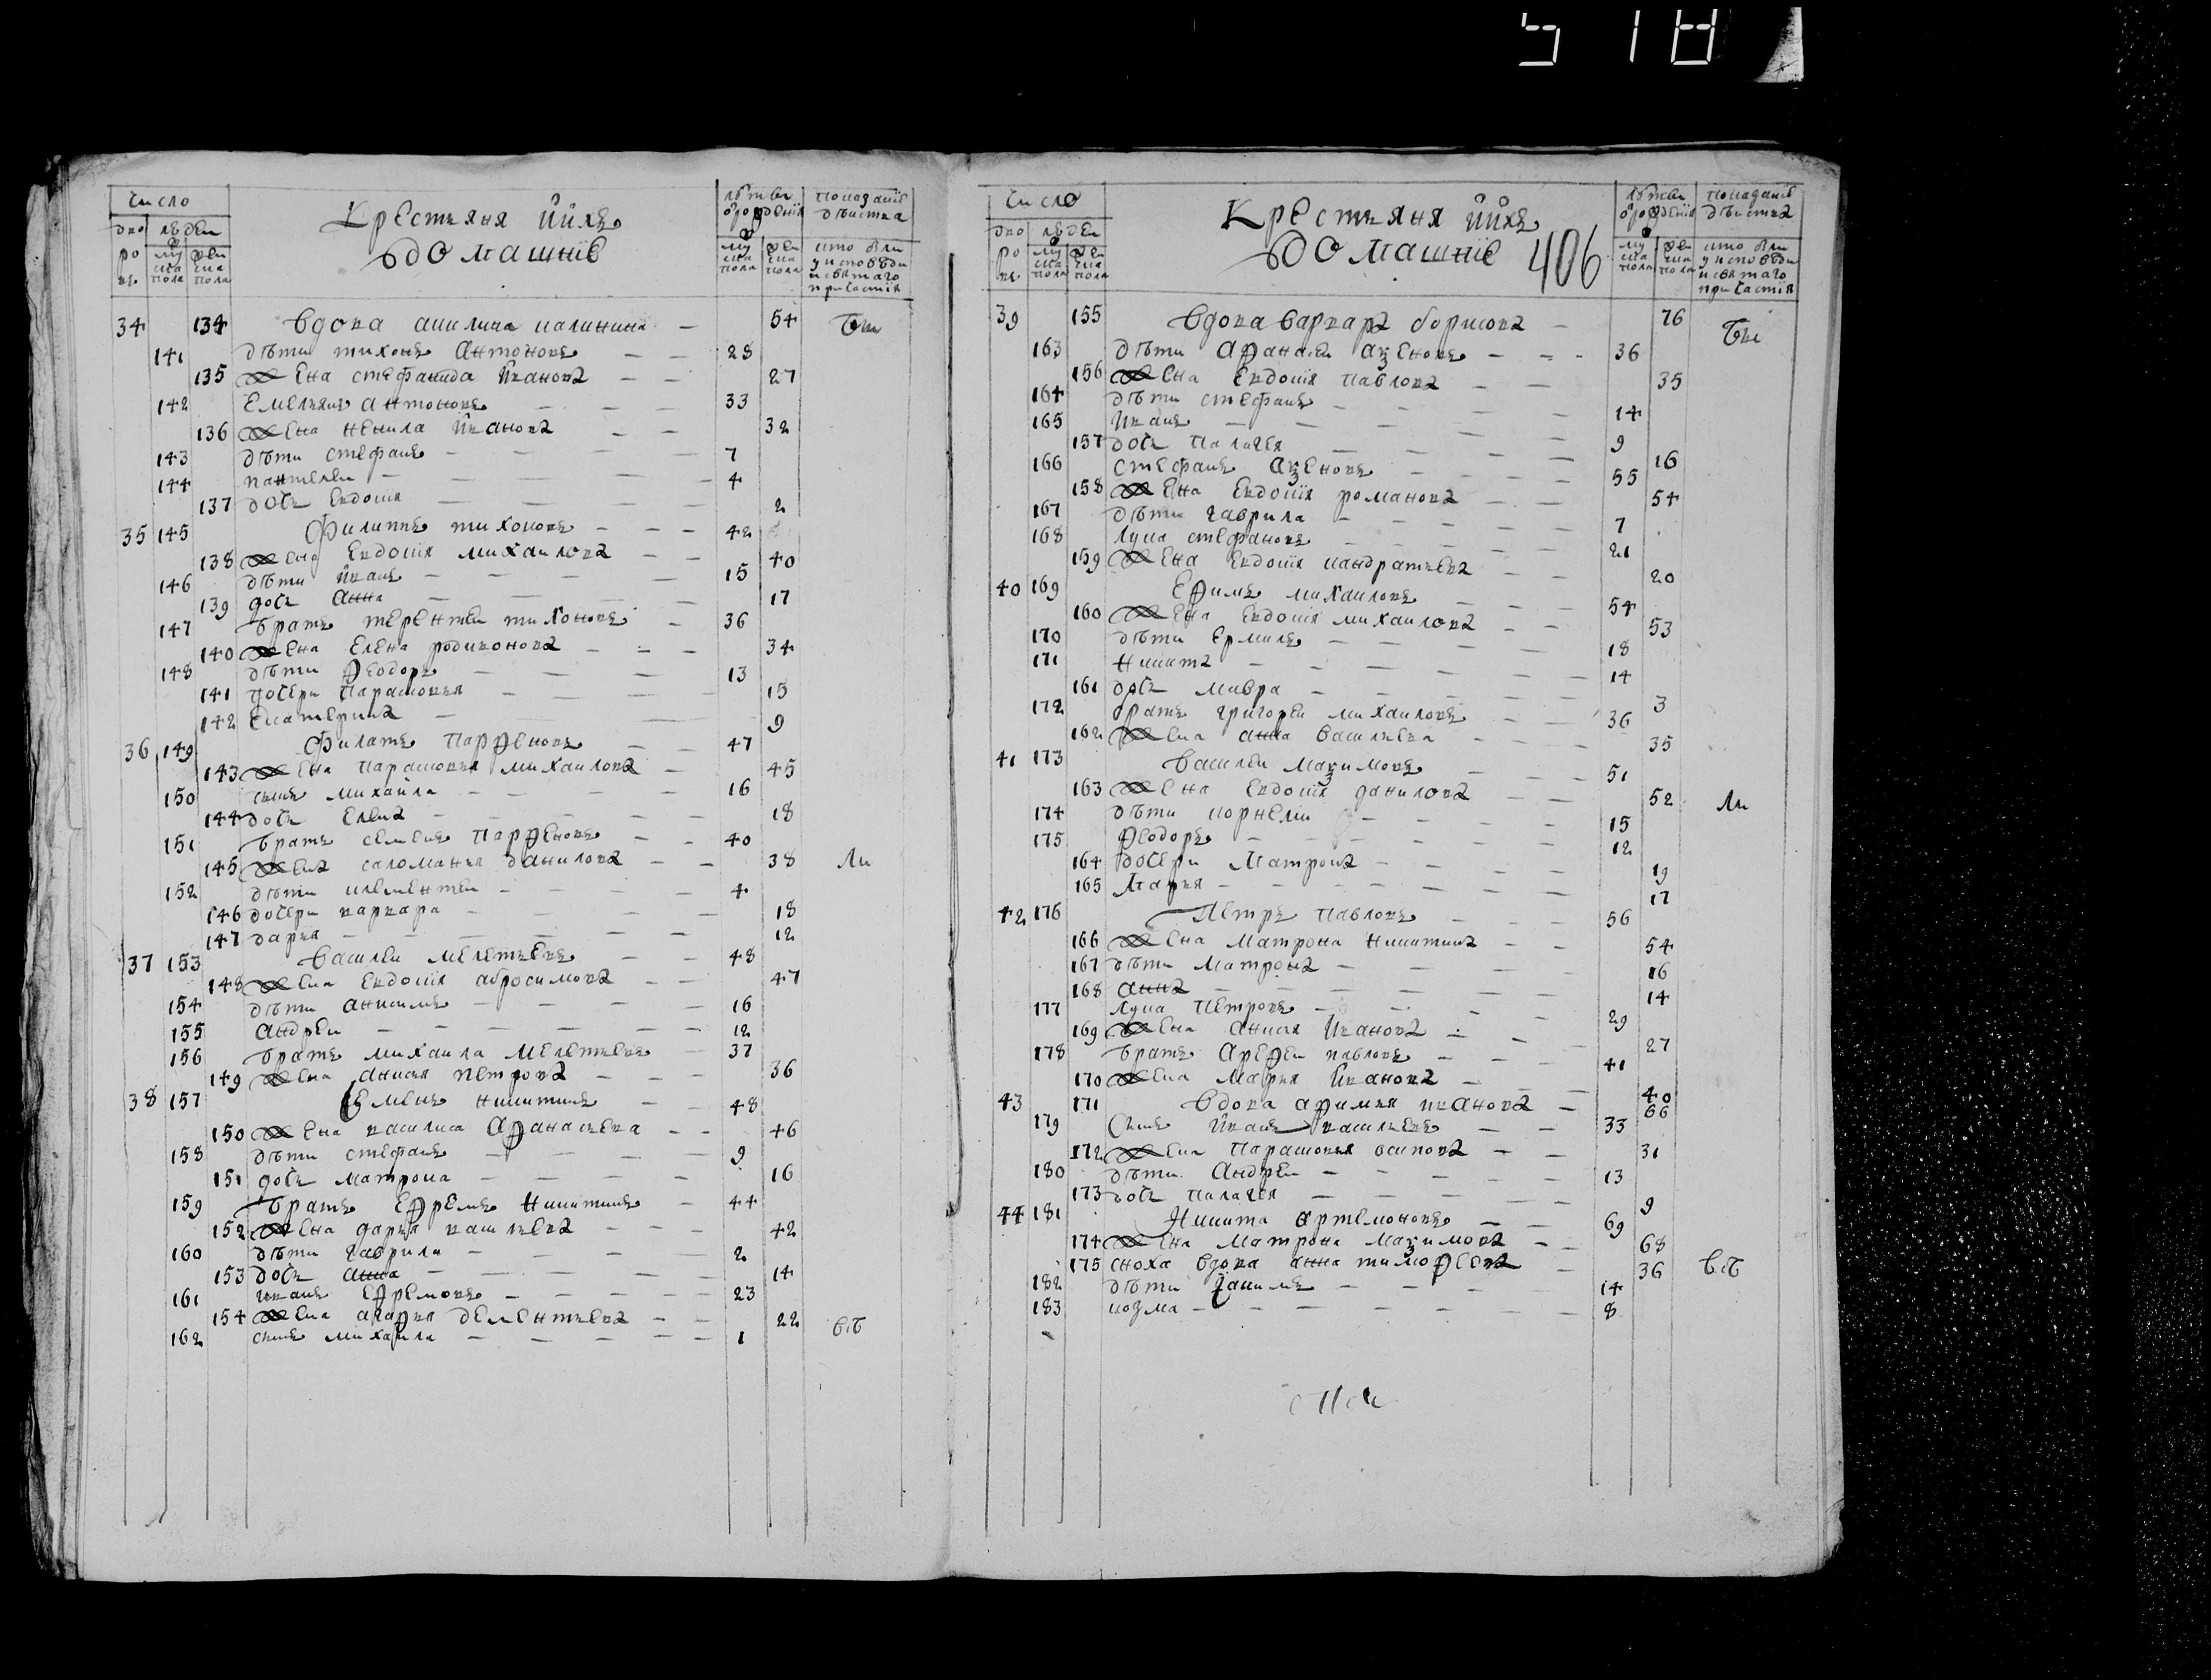 518
число
дворовъ
людей
мужска пола
женска пола
Крестьяня и ихъ домашнїе
лѣта от рожденїя
мужска пола
женска пола
показанїе дѣйства
кто был у исповѣди и свѧтаго причастїя
34 134 вдова акилина калинина — 54 бы
141 дѣти тихонъ антоновъ — — 28
135 жена стефанида ивановa — — 27
142 емельянъ антоновъ — — — 33
136 жена ненила иванова — — 32
143 дѣти стефанъ — — — — 7
144 пантелеи — — — — 4
137 дочь евдокия — — — — 2
35 145 филиппъ тихоновъ — — — 42
138 жена евдокия михаилова — — 40
146 дѣти иванъ — — — — 15
139 дочь анна — — — — 17
147 братъ терентеи тихоновъ — 36
140 жена елена родионова — — — 34
148 дѣти ѳеодоръ — — — 13
141 дочери парасковья — — — 15
142 екатерина — — — 9
36 149 филатъ парѳеновъ — — 47
143 жена парасковья михаилова — 45
150 сынъ михаила — — — — 16
144 дочь елена — — — — 18
151 братъ семенъ парѳеновъ — — 40
145 жена саломания данилова — — 38 ли
152 дѣти клементеи — — — — 4
146 дочери варвара — — — — 18
147 дарья — — — — — 12
37 153 василеи мелетьевъ — — 48
148 жена евдокия абросимова — — 47
154 дѣти анисимъ — — — — 16
155 андреи — — — — — 12
156 братъ михаила мелетьевъ — 37
149 жена анисья петрова — — — 36
38 157 семенъ никитинъ — — 48
150 жена василиса аѳанасьева — — 46
158 дѣти стефанъ — — — — 9
151 дочь матрона — — — — 16
159 братъ еѳремъ никитинъ — 44
152 жена дарья васильева — — — 42
160 дѣти гаврила — — — — 2
153 дочь анна — — — — — 14
161 иванъ еѳремовъ — — — — 23
154 жена агаѳья дементьева — — 22
162 сынъ михаила — — — — — 1 в.б
число
дворовъ
людей
мужска пола
женска пола
Крестьяня и ихъ домашнїе 406
лѣта от рожденїя
мужска пола
женска пола
показанїе дѣйства
кто был у исповѣди и свѧтаго причастїя
39 155 вдова варвара борисова — 76 бы
163 дѣти аѳанасеи аѯеновъ — — — 36
156 жена евдокия павлова — — 35
164 дѣти стефанъ — — — — 14
165 иванъ — — — — — 9
157 дочь палагея — — — — 16
166 стефанъ аѯеновъ — — — — 55
158 жена евдокия романова — — 54
167 дѣти гаврила — — — — 7
168 лука стефановъ — — — — 21
159 жена евдокия кандратьева — — 20
40 169 еѳимъ михаиловъ — — — 54
160 жена евдокия михаилова — — 53
170 дѣти ермилъ — — — — 18
171 никита — — — — — 14
161 дочь мавра — — — — 3
172 братъ григореи михаиловъ — — 36
162 жена анна васильева — — — 35
41 173 василеи маѯимовъ — — 51
163 жена евдокия данилова — — 52 ли
174 дѣти корнели — — — — 15
175 ѳеодоръ — — — — — 12
164 дочери матрона — — — — 19
165 марья — — — — — — 17
42 176 петръ павловъ — — — 56
166 жена матрона никитина — — 54
167 дѣти матрона — — — — 16
168 анна — — — — — 14
177 лука петровъ — — — — 29
169 жена анисья иванова — — — 27
178 братъ ареѳеи павловъ — — — 41
170 жена марья иванова — — — 40
43 171 вдова аѳимья иванова — 66
179 сынъ иванъ васильевъ — — 33
172 жена парасковья осипова — — 31
180 дѣти андреи — — — — 13
173 дочь палагея — — — — 9
44 181 никита артемоновъ — — 69
174 жена матрона маѯимова — — 68
175 сноха вдова анна тимоѳеева — 36 в.б
182 дѣти якимъ — — — — 14
183 козма — — — — — — 8